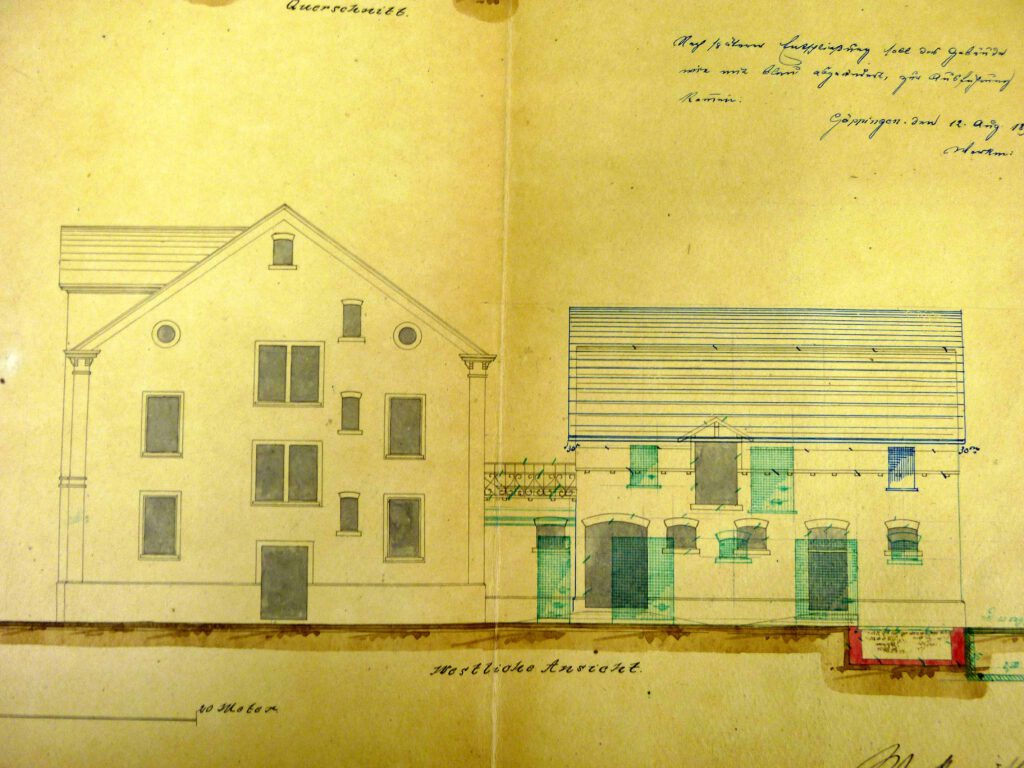 Querschnitt.
Nach späterer Entschließung soll das Gebäude
wie mit blau abgeändert, zur Ausführung
kommen.
Göppingen. den 12. Aug. 18
Werkm:
30
30
Westliche Ansicht.
20 Meter